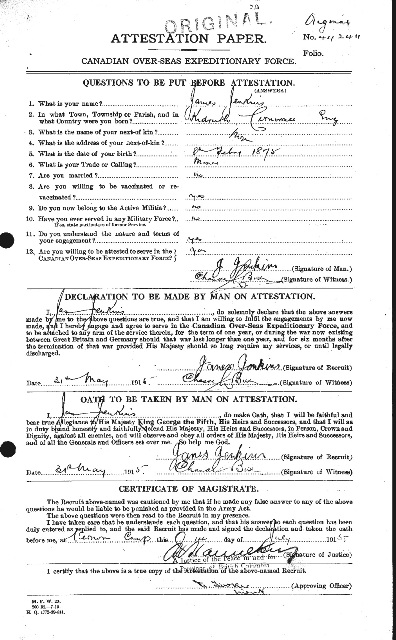 ORIGINAL.
ATTESTATION PAPER.
No.
Folio.
CANADIAN OVER-SEAS EXPEDITIONARY FORCE.
QUESTIONS TO BE PUT BEFORE ATTESTATION.
(ANSWERS)
1. What is your name? James Jenkins
2. In what Town, Township or Parish, and in what Country were you born? Redruth Cornwall Eng
3. What is the name of your next-of kin?
4. What is the address of your next-of-kin?
5. What is the date of your birth? 1875
6. What is your Trade or Calling? Miner
7. Are you married? no
8. Are you willing to be vaccinated or re-vaccinated? yes
9. Do you now belong to the Active Militia? no
10. Have you ever served in any Military Force? no
If so, state particulars of former Service.
11. Do you understand the nature and terms of your engagement? yes
12. Are you willing to be attested to serve in the CANADIAN OVER-SEAS EXPEDITIONARY FORCE? yes
J. Jenkins (Signature of Man.)
(Signature of Witness)
DECLARATION TO BE MADE BY MAN ON ATTESTATION.
I, Jas Jenkins, do solemnly declare that the above answers
made by me to the above questions are true, and that I am willing to fulfil the engagements by me now
made, and I hereby engage and agree to serve in the Canadian Over-Seas Expeditionary Force, and to
be attached to any arm of the service therein, for the term of one year, or during the war now existing
between Great Britain and Germany should that war last longer than one year, and for six months after
the termination of that war provided His Majesty should so long require my services, or until legally
discharged.
James Jenkins (Signature of Recruit)
Date May 1915 (Signature of Witness)
OATH TO BE TAKEN BY MAN ON ATTESTATION.
I, Jas Jenkins, do make Oath, that I will be faithful and
bear true Allegiance to His Majesty King George the Fifth, His Heirs and Successors, and that I will as
in duty bound honestly and faithfully defend His Majesty, His Heirs and Successors, in Person, Crown and
Dignity, against all enemies, and will observe and obey all orders of His Majesty, His Heirs and Successors,
and of all the Generals and Officers set over me. So help me God.
James Jenkins (Signature of Recruit)
Date May 1915 (Signature of Witness)
CERTIFICATE OF MAGISTRATE.
The Recruit above-named was cautioned by me that if he made any false answer to any of the above
questions he would be liable to be punished as provided in the Army Act.
The above questions were then read to the Recruit in my presence.
I have taken care that he understands each question, and that his answer to each question has been
duly entered as replied to, and the said Recruit has made and signed the declaration and taken the oath
before me, at Vernon Camp this day of July 1915
(Signature of Justice)
I certify that the above is a true copy of the Attestation of the above-named Recruit.
(Approving Officer)